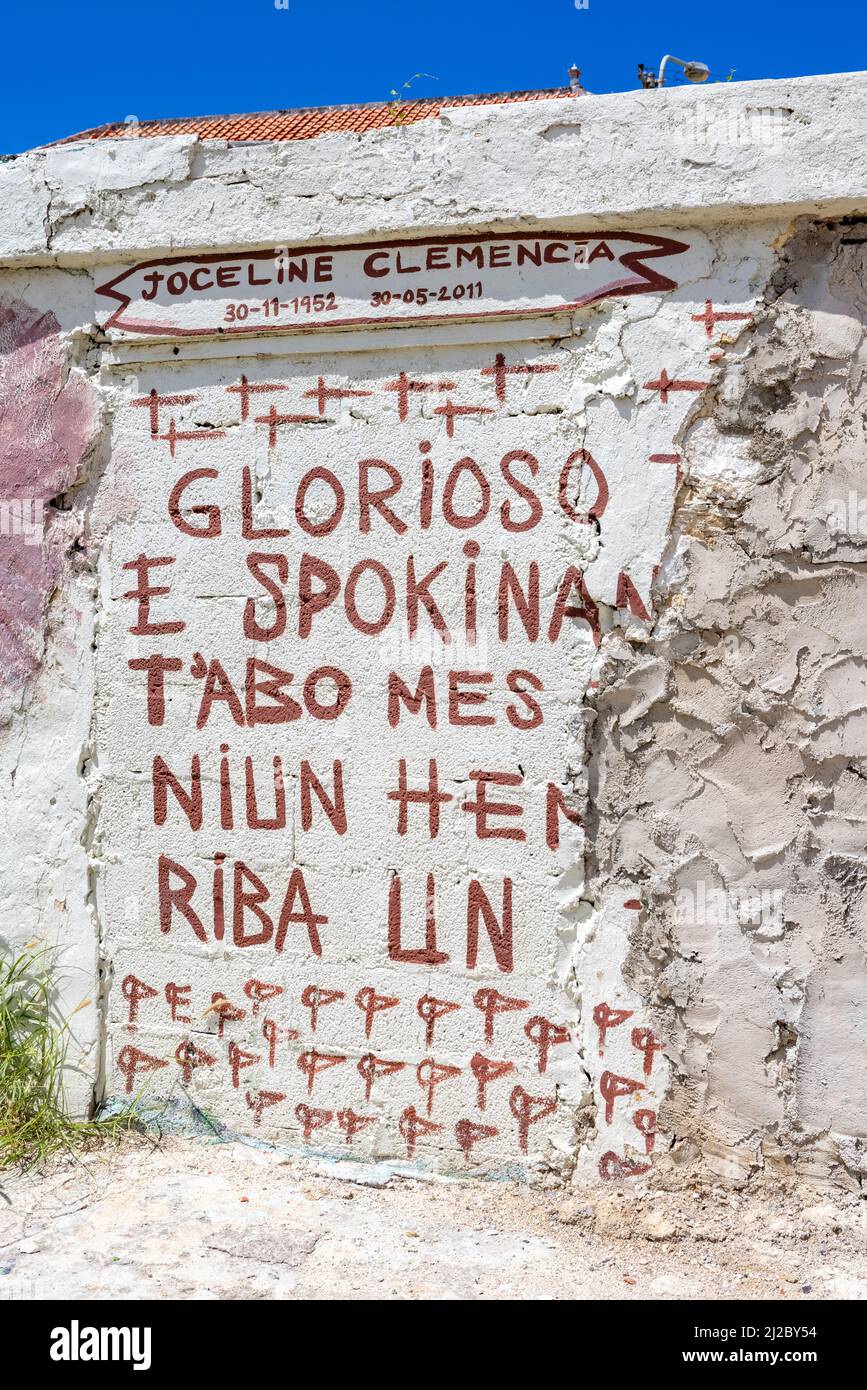 JOCELINE CLEMENCIA
30-11-1952 30-05-2011
GLORIOSO
E SPOKINAN
T'ABO MES
NIUN HEN
RIBA UN
alamy
Image ID: 2J2BY54
www.alamy.com